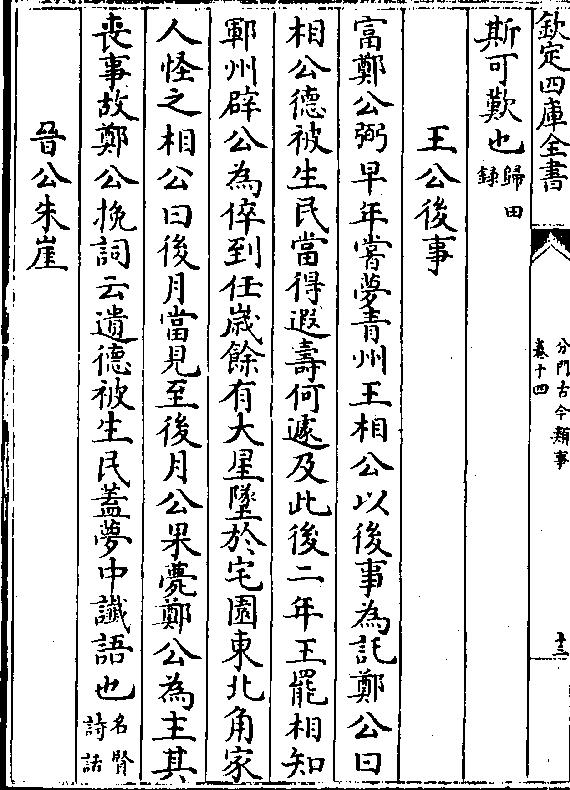 欽定四庫全書
分門古今類事
卷十四
十三
斯可歎也歸田
錄
王公後事
富鄭公弼早年嘗夢青州王相公以後事為託鄭公曰
相公德被生民當得遐壽何遽及此後二年王罷相知
鄆州辟公為倅到任嵗餘有大星墜於宅園東北角家
人怪之相公曰後月當見至後月公果薨鄭公為主其
喪事故鄭公挽詞云遺德被生民蓋夢中讖語也名賢
詩話
晉公朱崖